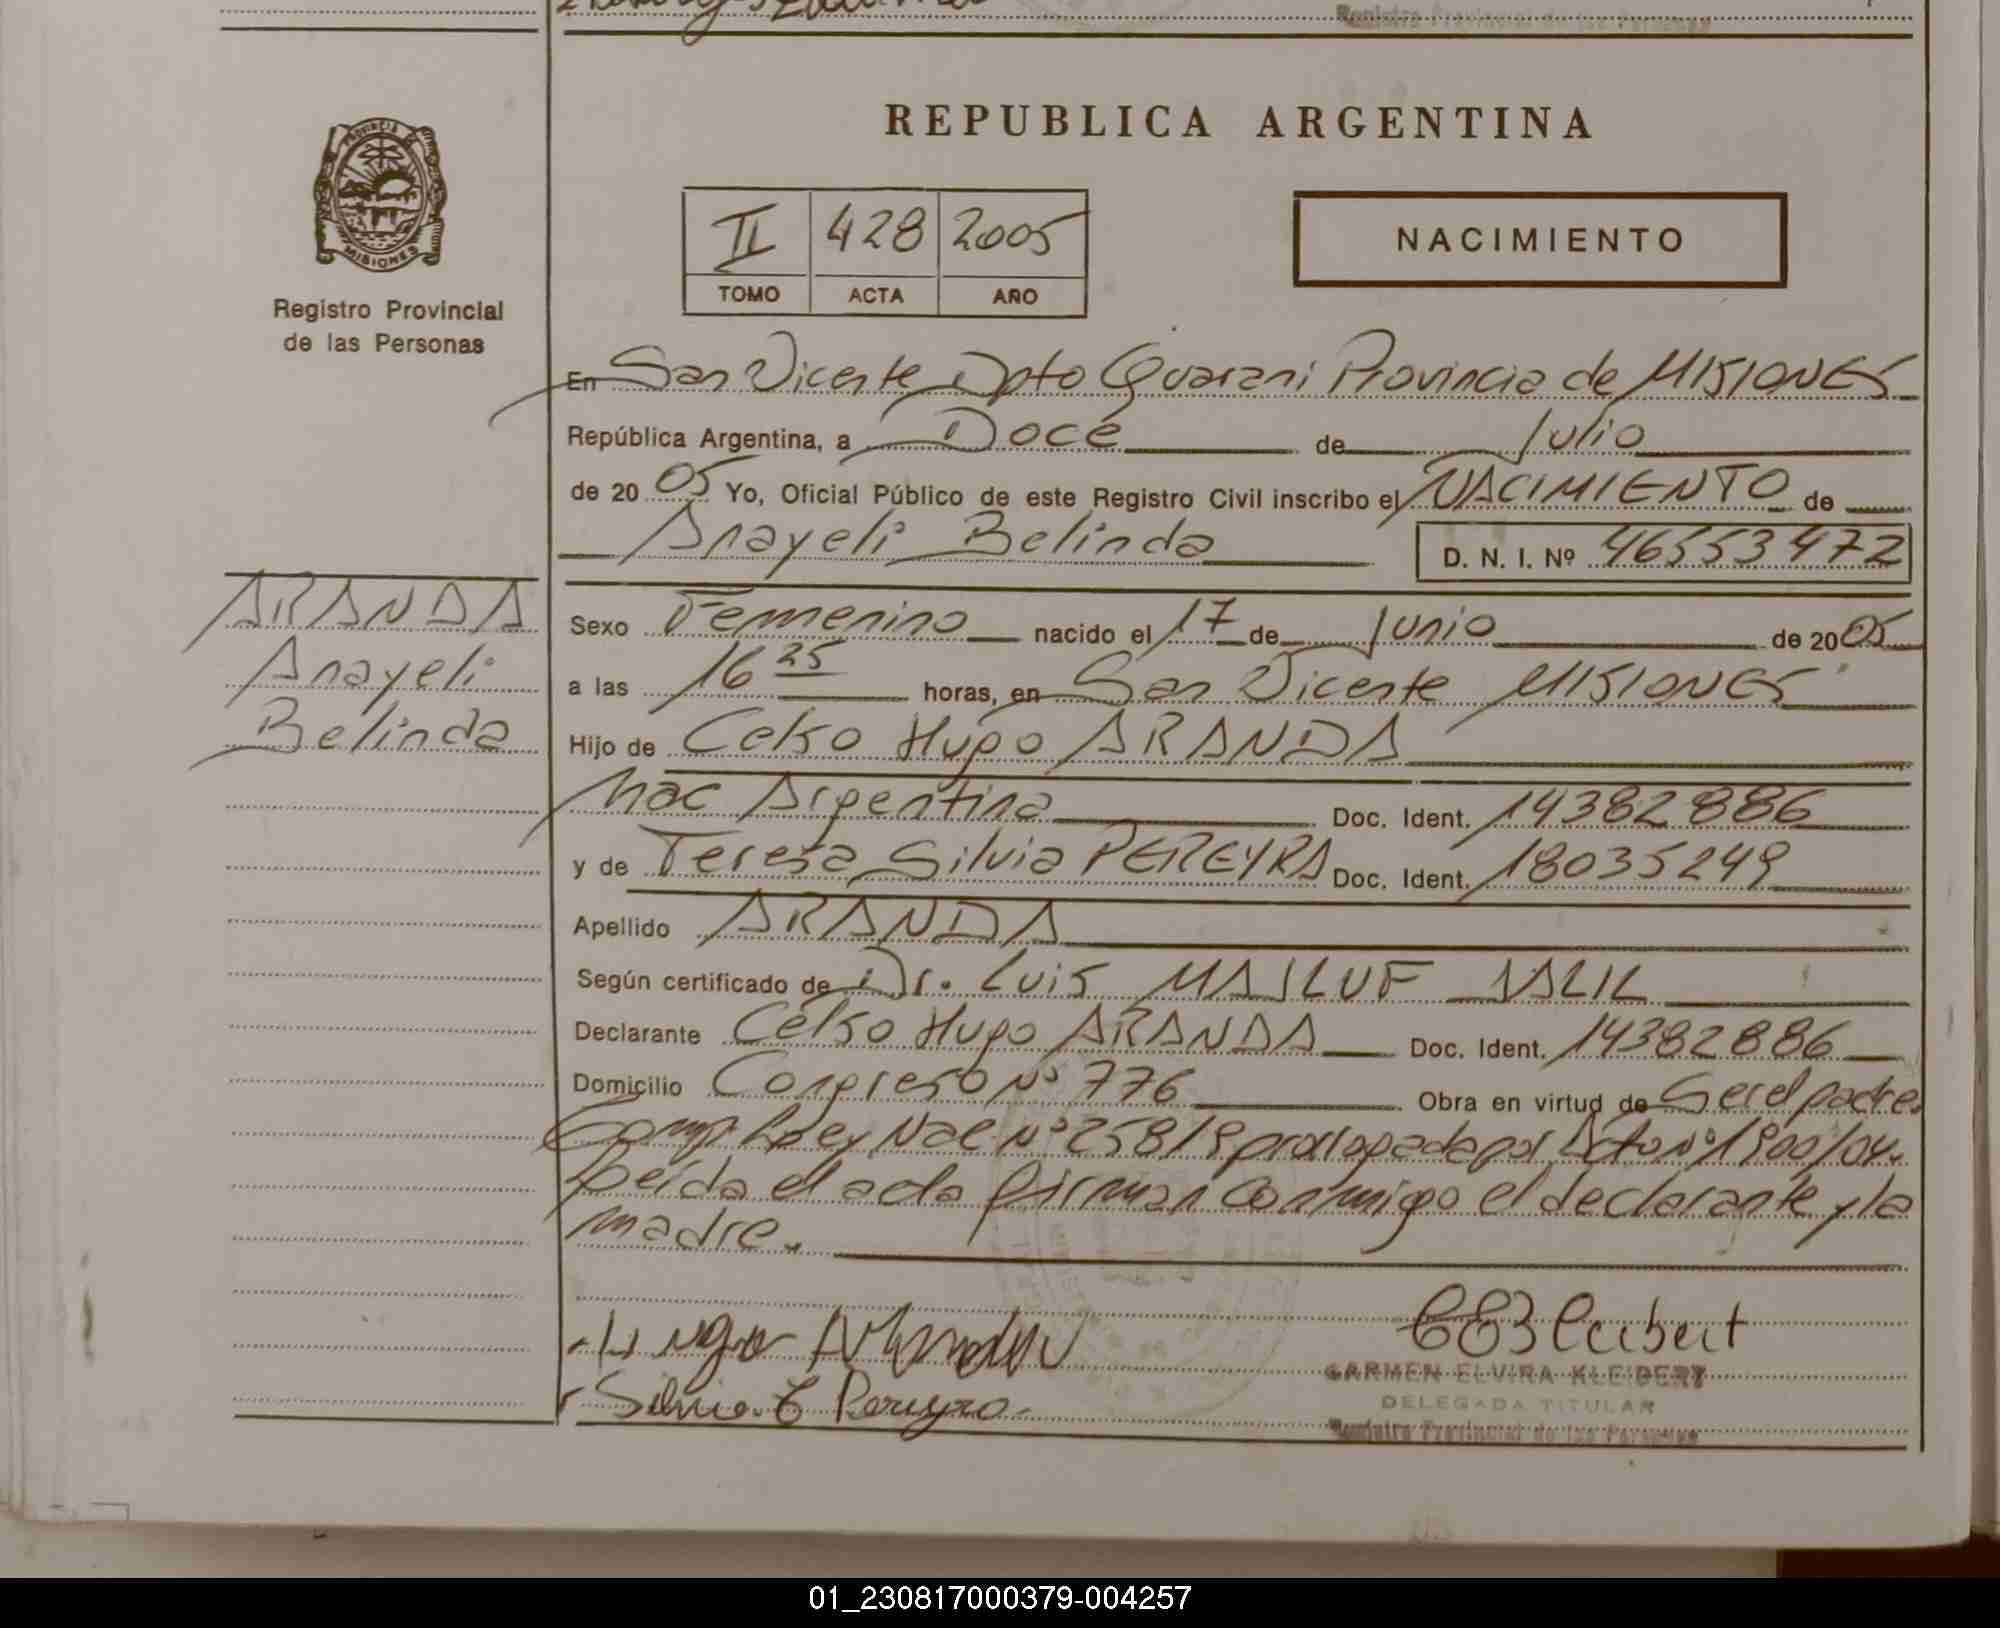 REPUBLICA ARGENTINA
PROVINCIA DE
MISIONES
Registro Provincial
de las Personas
II 428 2005
TOMO ACTA AÑO
NACIMIENTO
En San Vicente Dpto Guarani Provincia de MISIONES
República Argentina, a Doce de Julio
de 2005 Yo, Oficial Público de este Registro Civil inscribo el NACIMIENTO de
Anayeli Belinda D. N. I. Nº 46553472
ARANDA
Anayeli
Belinda
Sexo Femenino nacido el 17 de Junio de 2005
a las 16 25 horas, en San Vicente MISIONES
Hijo de Celso Hugo ARANDA
Nac Argentina Doc. Ident. 14382886
y de Teresa Silvia PEREYRA Doc. Ident. 18035249
Apellido ARANDA
Según certificado de Dr. Luis MASLUF
Declarante Celso Hugo ARANDA Doc. Ident. 14382886
Domicilio Congreso Nº 776 Obra en virtud de Ser el padre.
Ley Nac Nº 25819 por Dcto Nº 1900/04.
Leída el acta firman conmigo el declarante y la
madre.
Silvia T Pereyra
CARMEN ELVIRA KLEIBERT
DELEGADA TITULAR
Registro Provincial de las Personas
01_230817000379-004257